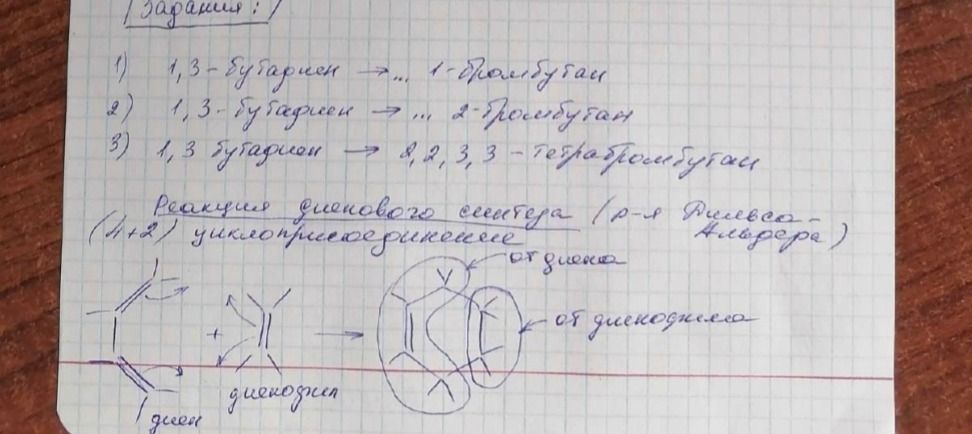 Задания:
1) 1,3-бутадиен → ... 1-бромбутан
2) 1,3-бутадиен → ... 2-бромбутан
3) 1,3 бутадиен → 2,2,3,3-тетрабромбутан
Реакция диенового синтеза (р-я Дильса-
(4+2) циклоприсоединение Альдера)
от диена
+ → от диенофила
диенофил
диен